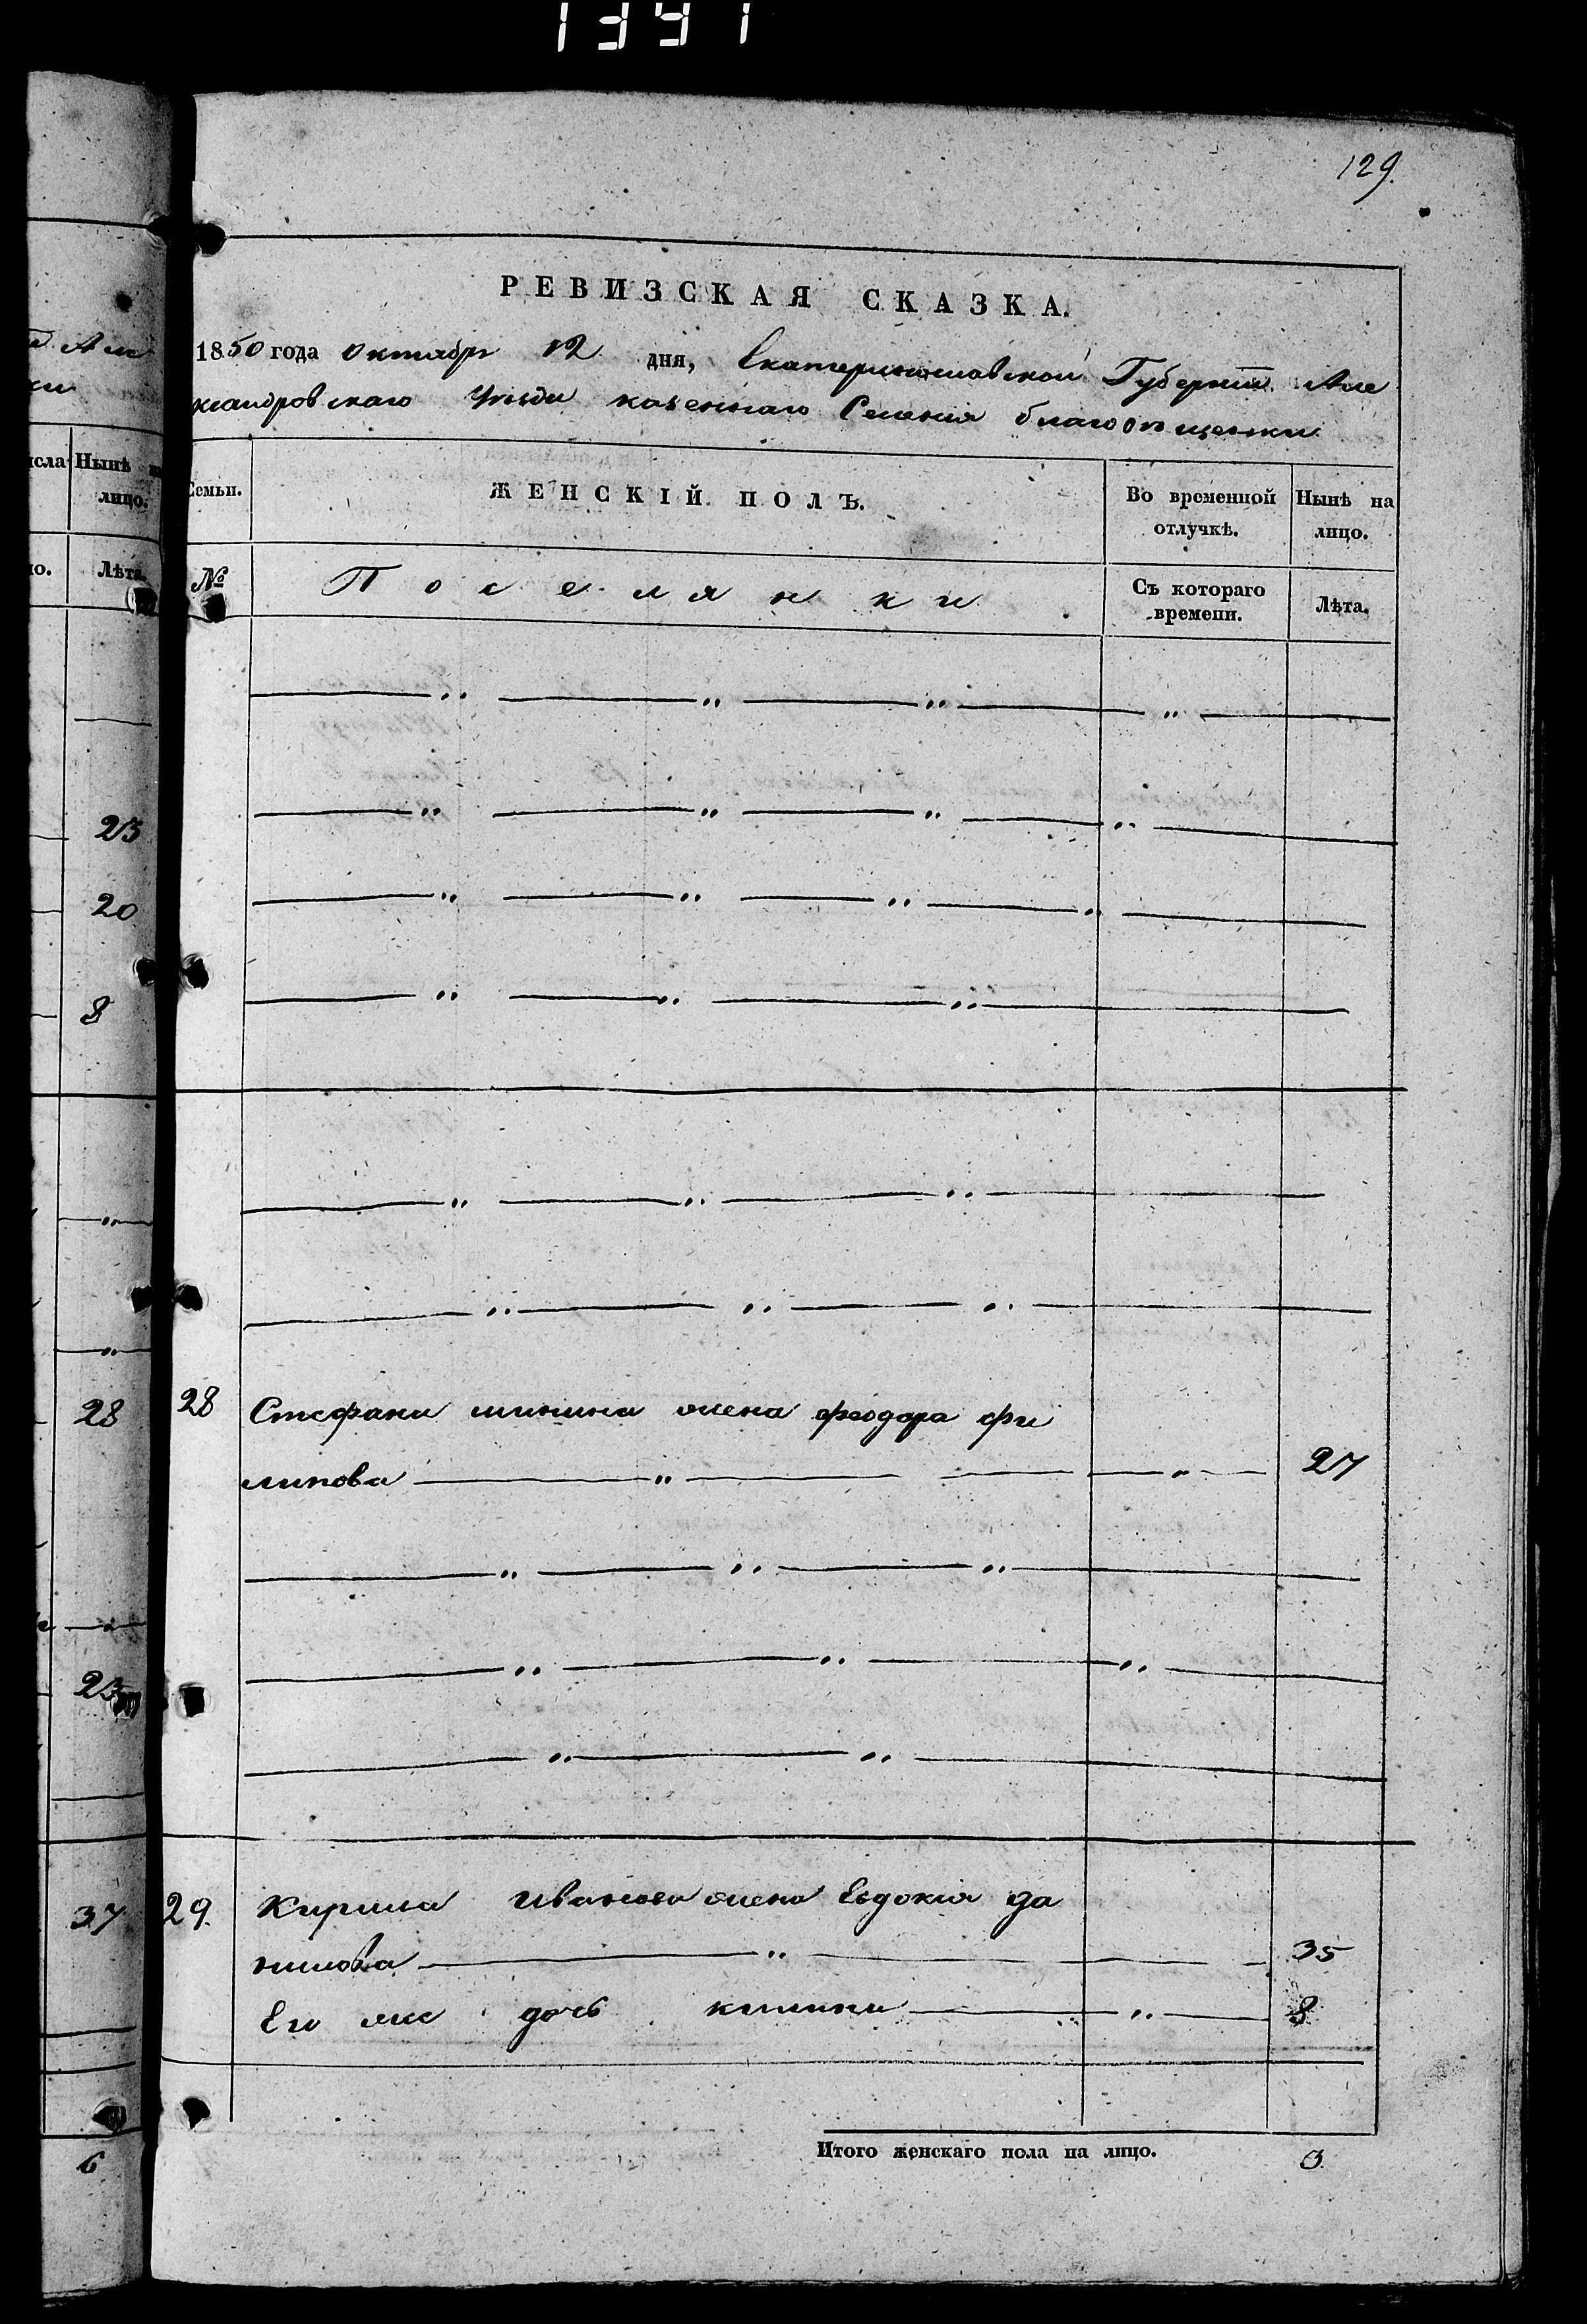 1391
129.
РЕВИЗСКАЯ СКАЗКА.
1850 года октября 12 дня, Екатеринославской Губернiи Але
ксандровскаго уезда казеннаго Селения благовещенки
Семьи.
ЖЕНСКIЙ ПОЛЪ.
Во временной отлучкѣ.
Нынѣ на лицо.
№
Поселянки
Съ котораго времени.
Лѣта.
28 Стефана жена феодора фи
липова 27
29. Кирила Иванова жена Евдокия да
нилова 35
Его же дочь 8
Итого женскаго пола на лицо. 3.
Нынѣ
лицо.
Лѣта.
23
20
8
28
23
37
6